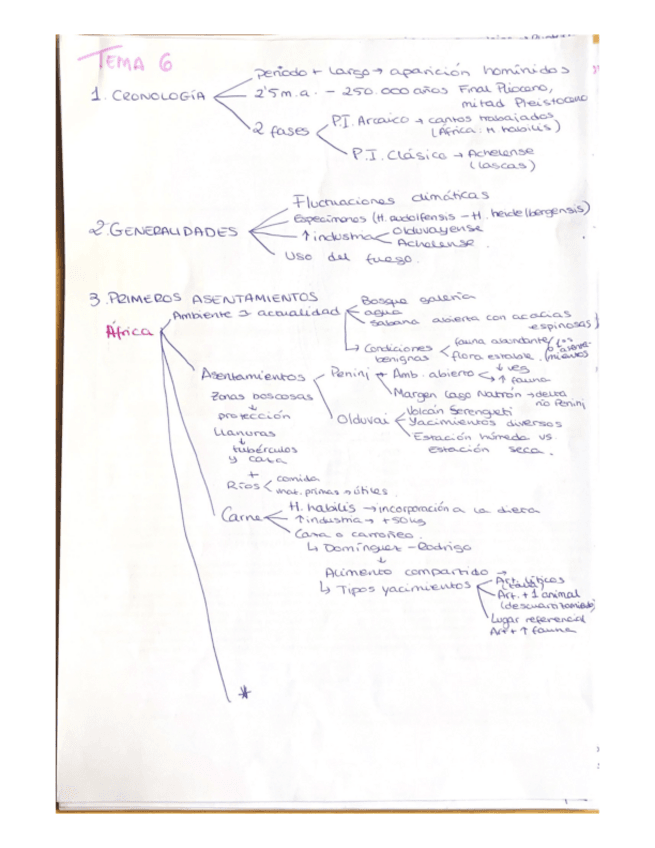 TEMA 6
1. CRONOLOGÍA
periodo + largo → aparición homínidos
2'5 m.a. - 250.000 años Final Plioceno,
mitad Pleistoceno
2 fases
P.I. Arcaico → cantos trabajados
(África: H. habilis)
P.I. Clásico → Achelense
(lascas)
2. GENERALIDADES
Fluctuaciones climáticas
Especímenes (H. rudolfensis - H. heidelbergensis)
↑ industria
Olduvayense
Achelense.
Uso del fuego.
3. PRIMEROS ASENTAMIENTOS
África
Ambiente actualidad
Bosque galería
agua
sabana abierta con acacias
espinosas
↳ Condiciones
benignas
fauna abundante
flora estable.
Asentamientos
Peninj → Amb. abierto
↓ veg
↑ fauna
Margen Lago Natrón → delta
río Peninj
Zonas boscosas
↓
protección
Llanuras
↓
tubérculos
y caza
+
Ríos
comida
mat. primas → útiles.
Olduvai
Volcán Serengeti
Yacimientos diversos
Estación húmeda vs.
estación seca.
Carne
H. habilis → incorporación a la dieta
↑ industria → +50 kg
Caza o carroñeo.
↳ Domínguez-Rodrigo
↓
Alimento compartido →
↳ Tipos yacimientos
Art. líticos
Art. + 1 animal
(descuartizamiento)
Lugar referencial
Art + ↑ fauna
*